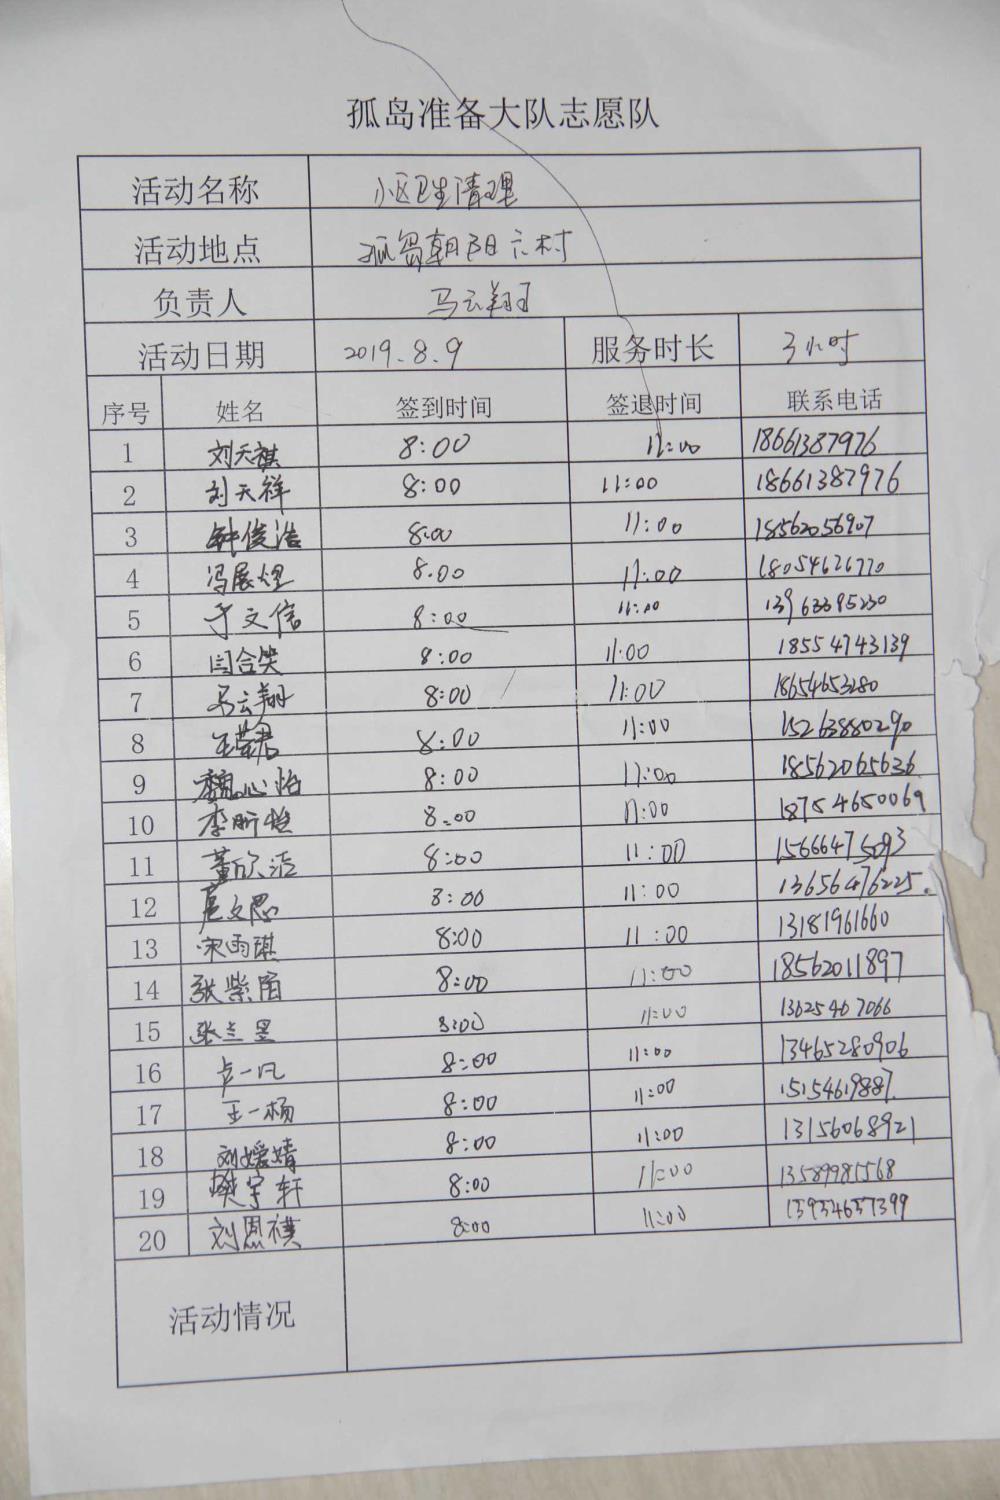 孤岛准备大队志愿队
活动名称 小区卫生清理
活动地点 孤岛朝阳六村
负责人 马云翔
活动日期 2019.8.9 服务时长 3小时
序号 姓名 签到时间 签退时间 联系电话
1 刘天祺 8:00 11:00 18661387976
2 刘天祥 8:00 11:00 18661387976
3 钟俊浩 8:00 11:00 18562056907
4 冯展煜 8:00 11:00 18054626770
5 于文信 8:00 11:00 13963395230
6 闫合笑 8:00 11:00 18554743139
7 马云翔 8:00 11:00 18654653280
8 王荣君 8:00 11:00 15263880290
9 魏心怡 8:00 11:00 18562065636
10 李昕怡 8:00 11:00 18754650069
11 董欣洁 8:00 11:00 15666475093
12 扈文思 8:00 11:00 13656476225.
13 宋雨琪 8:00 11:00 13181961660
14 张紫眉 8:00 11:00 18562011897
15 张兰昱 8:00 11:00 13625467066
16 卢一凡 8:00 11:00 13465280906
17 王一杨 8:00 11:00 15154619887.
18 刘媛婧 8:00 11:00 13156068921
19 樊宇轩 8:00 11:00 13589981568
20 刘恩祺 8:00 11:00 13954657399
活动情况